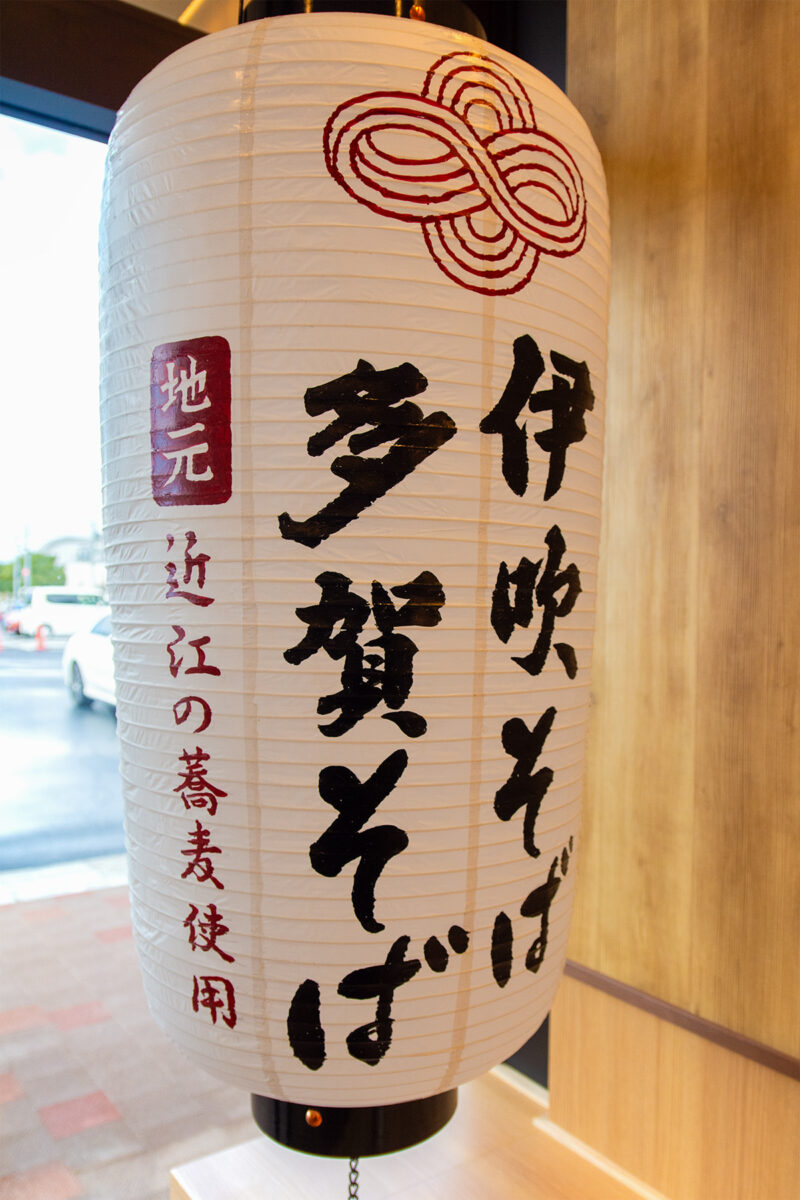 伊吹そば
多賀そば
地元
近江の蕎麦使用